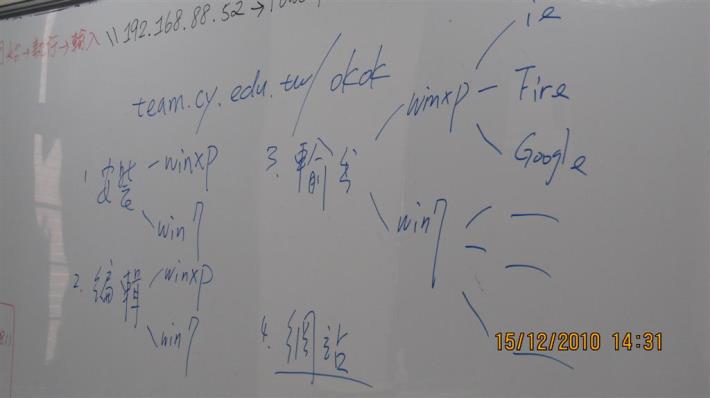 執行→輸入 \\192.168.88.52→
team.cy.edu.tw/okok
1. 安裝 winxp
win7
2. 編輯 winxp
win7
3. 輸出 winxp ie
Fire
Google
win7
4. 網站
15/12/2010 14:31